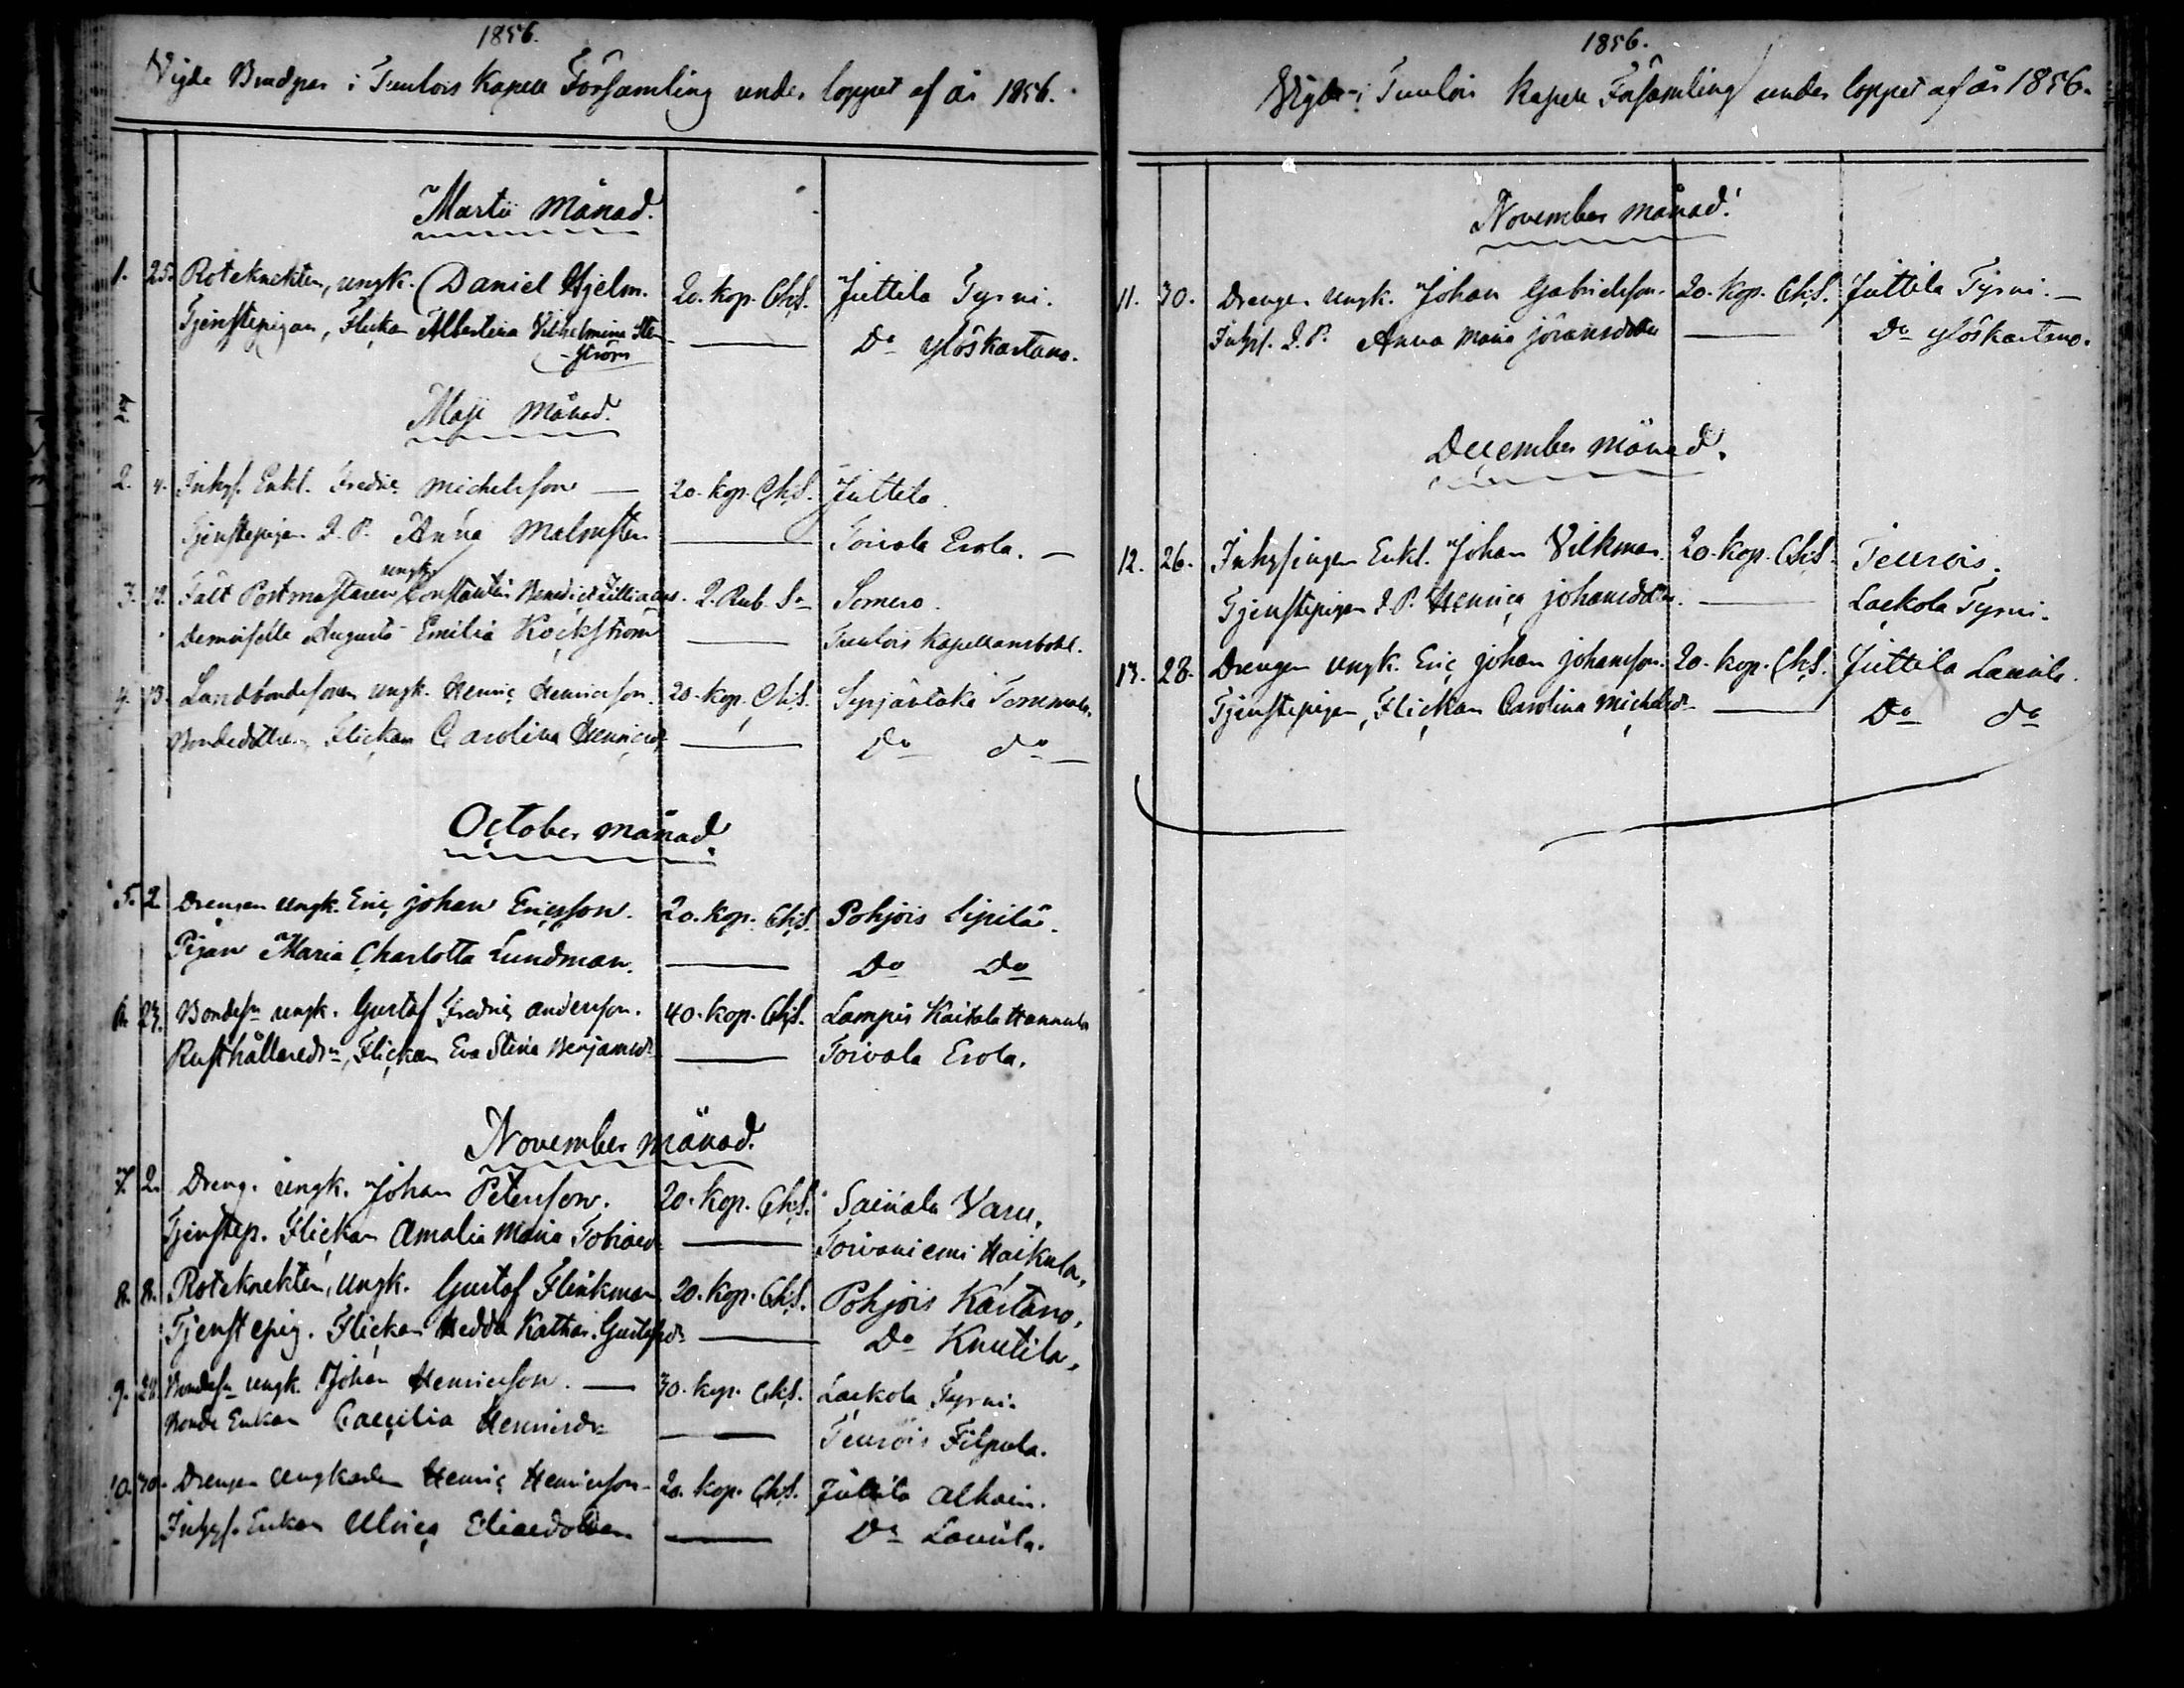 1856.
Vigde Brudpar i Tuulois Kapell Församling under loppet af år 1856.
Martii Månad.
1. 25. Roteknekten, ungk. Daniel Hjelm. 20. kop. Ch.S. Juttila Tyrni.
Tjenstepigan, Flickan Albertina Vilhelmina Sten-
ström — Do Ylöskartano.
Maji Månad.
2. 4. Inhys. Enkl. Fredric Michelsson — 20. kop. Ch.S. Juttila
Tjenstepigan I. P. Anna Malmsten — Toivala Erola. —
ungk.
3. 12. Fält Postmästaren Constantin Benedict Zilliacus. 2. Rub. Sr Somero.
Demoiselle Augusta Emilia Kockström — Tuulois Kapellansbohl.
4. 13. Landbondesonen ungk. Henric Henricsson. 20. kop. Ch.S. Syrjäntaka Tommola.
Bondedottren, Flickan Carolina Henricsdr — Do do —
October månad.
5. 2. Drengen ungk. Eric Johan Ericsson. 20. kop. Ch.S. Pohjois Sipilä.
Pigan Maria Charlotta Lundman. — Do Do
6. 23. Bondesn ungk. Gustaf Fredric Andersson. 40. kop. Ch.S. Lampis Kaitala Hannula
Rusthållaredr, Flickan Eva Stina Benjamsdr — Toivala Erola.
November månad.
7. 2. Dreng. ungk. Johan Petersson. 20. kop. Ch.S. Sairiala Varu.
Tjenstep. Flickan Amalia Maria Tobiaed — Toivaniemi Haikula.
8. 8. Roteknekten, ungk. Gustaf Flinkman 20. kop. Ch.S. Pohjois Kartano.
Tjenstepig. Flickan Hedda Kathar. Gustafsdr — Do Knutila.
9. Bondesn ungk. Johan Henricsson. — 30. kop. Ch.S. Lackola Tyrni.
Bonde Enkan Caecilia Henricsdr — Teurois Filpula.
10. 30. Drengen Ungkarlen Henric Henricsson 20. kop. Ch.S. Juttila Alhain.
Inhys. Enkan Ulrica Eliaedotter — Do Laurila.
1856.
Vigde i Tuulois Kapell Församling under loppet af år 1856.
November månad.
11. 30. Drengen Ungk. Johan Gabrielsson. 20. kop. Ch.S. Juttila Tyrni. —
Inhys. I. P. Anna Maria Jöransdotter — Do Ylöskartano.
December månad.
12. 26. Inhysingen Enkl. Johan Vilkman. 20. kop. Ch.S. Teurois.
Tjenstepigan I. P. Henrica Johansdotter. — Lackola Tyrni.
13. 28. Drengen ungk. Eric Johan Johansson. 20. kop. Ch.S. Juttila Laurila.
Tjenstepigan, Flickan Carolina Michelsdr — Do do